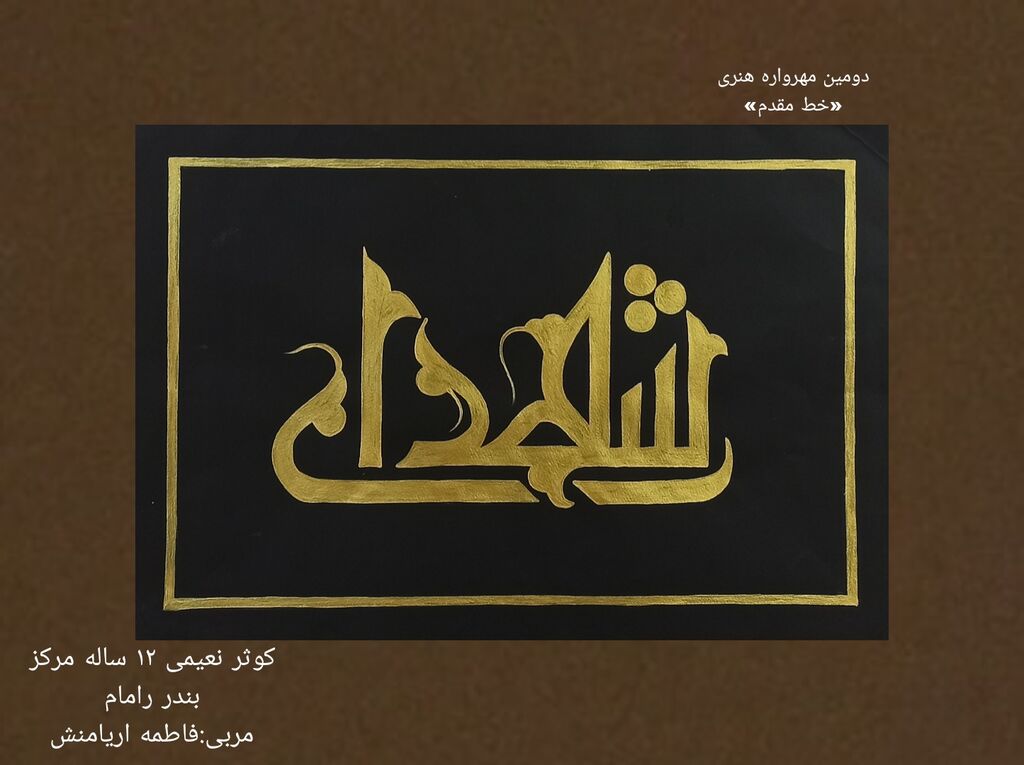 دومین مهرواره هنری
«خط مقدم»
شهدای
کوثر نعیمی ۱۲ ساله مرکز
بندر رامام
مربی:فاطمه اریامنش